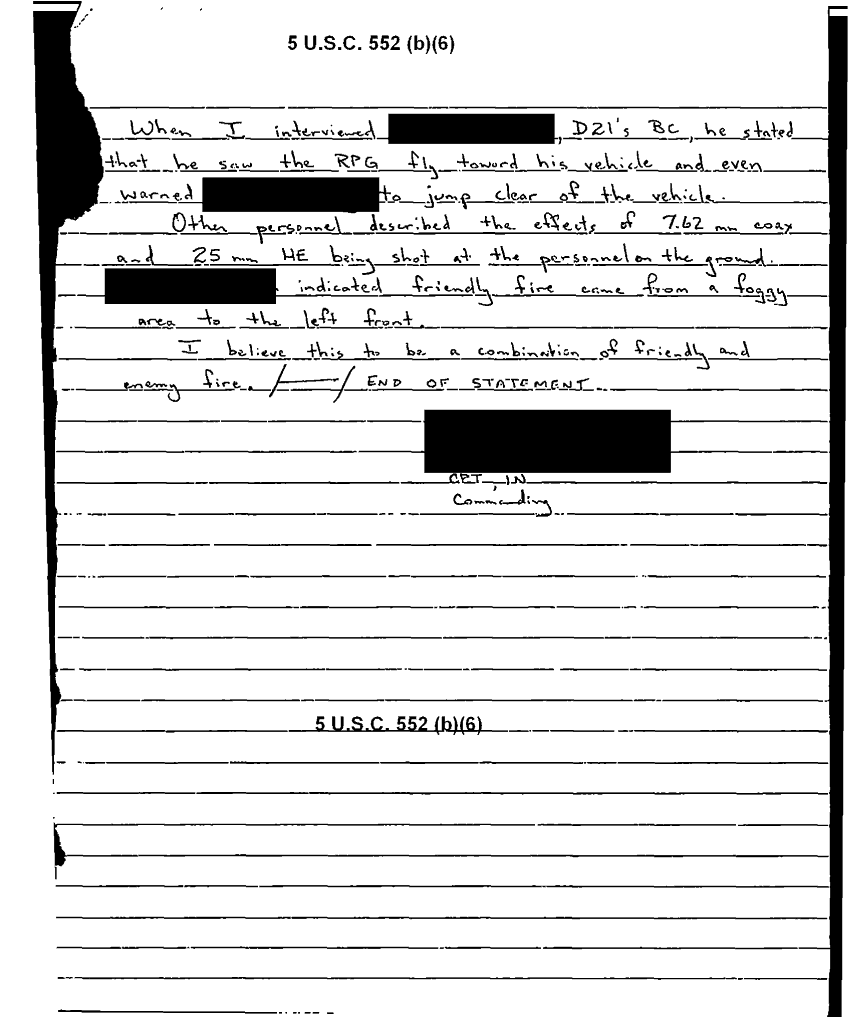 5 U.S.C. 552 (b)(6)
When I interviewed , D21's BC, he stated
that he saw the RPG fly toward his vehicle and even
warned to jump clear of the vehicle.
Other personnel described the effects of 7.62 mm coax
and 25 mm HE being shot at the personnel on the ground.
indicated friendly fire came from a foggy
area to the left front.
I believe this to be a combination of friendly and
enemy fire. /——/ END OF STATEMENT
CPT, IN
Commanding
5 U.S.C. 552 (b)(6)